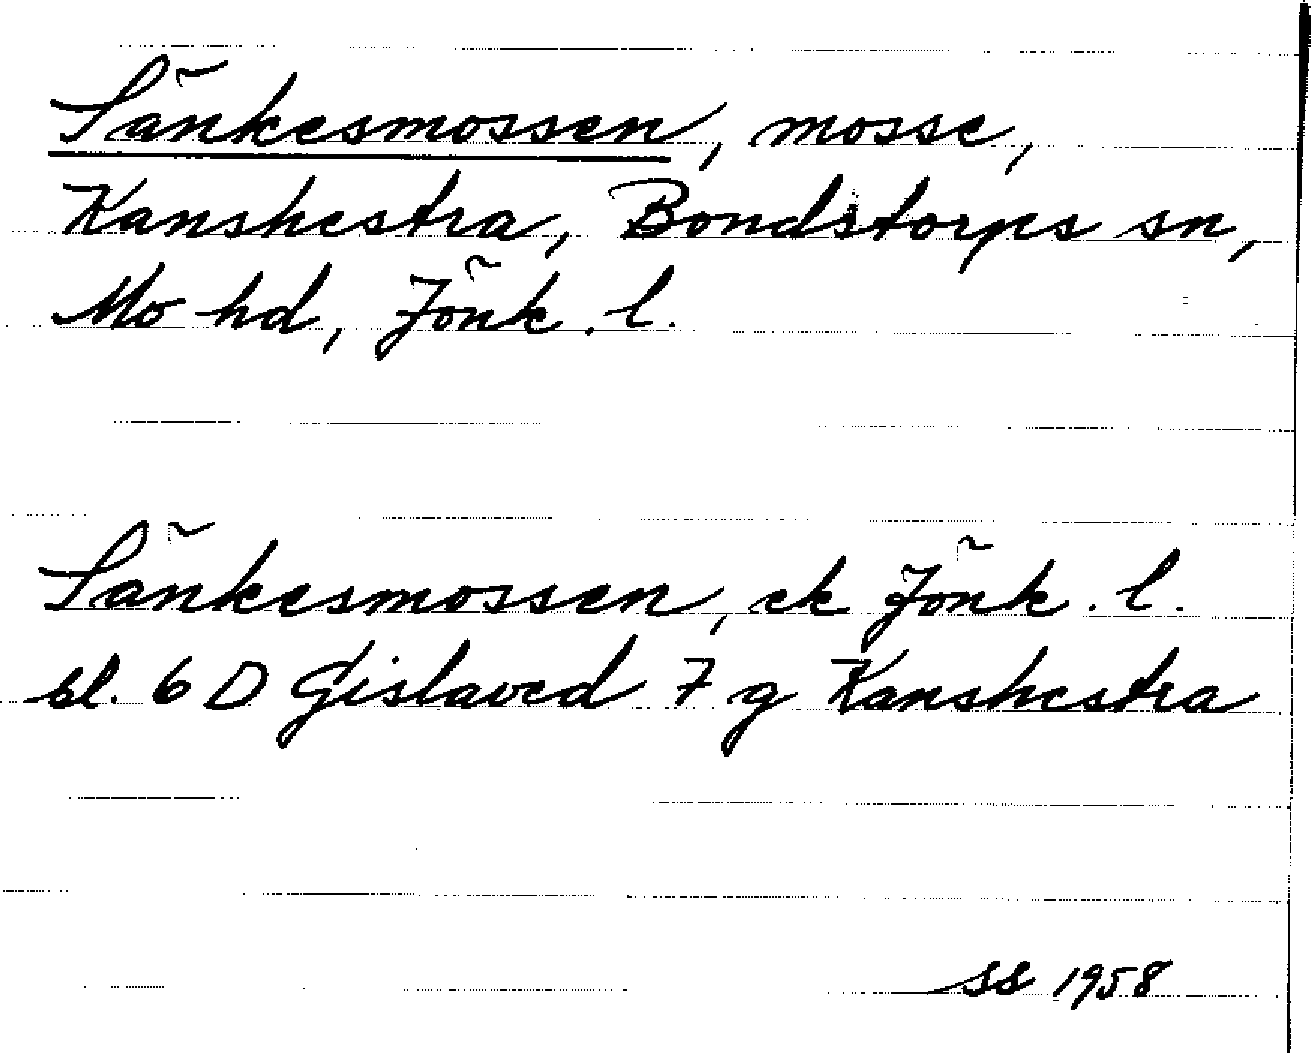 Sänkesmossen, mosse,
Kanshestra, Bondstorps sn,
Mo hd, Jönk. l.
Sänkesmossen, ek Jönk. l.
bl. 6 D Gislaved 7 g Kanshestra
SS 1958